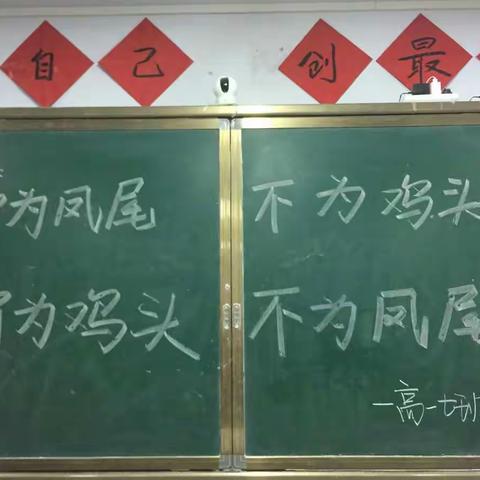 自己 创最
为凤尾 不为鸡头
为鸡头 不为凤尾
—高一七班